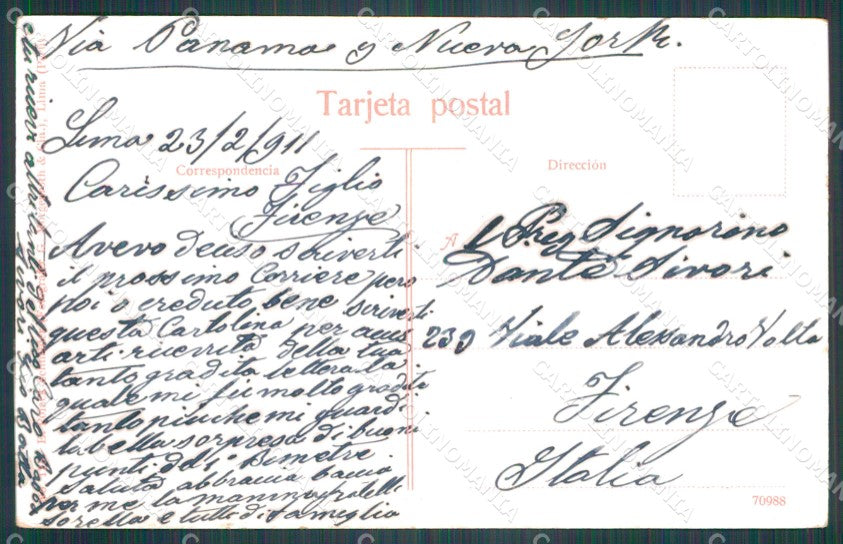 Via Panama y Nueva York.
Tarjeta postal
Lima 23/2/911
Correspondencia
Carissimo Figlio
Firenze
Avevo deciso scriverti
il prossimo Corriere però
poi o creduto bene scriverti
questa Cartolina per accus
arti ricevuta della tua
tanto gradita lettera la
quale mi fu molto gradita
tanto piu che mi guardi
la bella sorpresa di buoni
punti del 1° Bimetre
saluta abbraccia baccia
per me la mamma fratelli
sorella e tutti di famiglia
Dirección
A
Preg Signorino
Dante Sivori
239 Viale Alessandro Volta
Firenze
Italia
70988
CARTOLINOMANIA